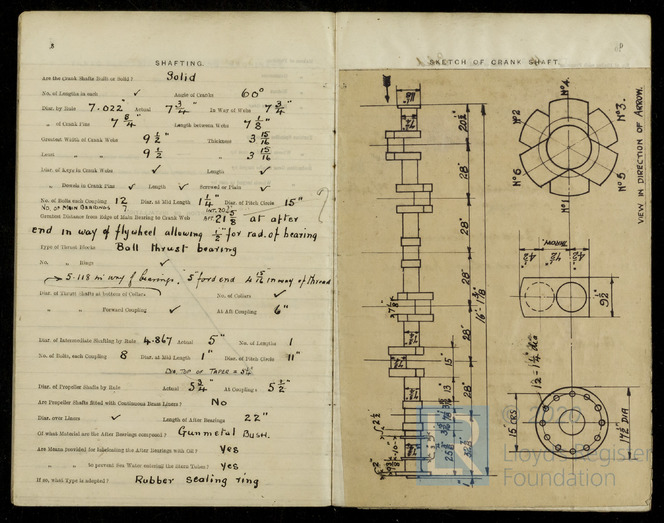 8
SHAFTING.
Are the Crank Shafts Built or Solid? Solid
No. of Lengths in each ✓ Angle of Cranks 60°
Diar. by Rule 7.022" Actual 7 3/4" In Way of Webs 7 3/4"
„ of Crank Pins 7 3/4" Length between Webs 7 1/8"
Greatest Width of Crank Webs 9 1/2" Thickness 3 15/16
Least „ „ 9 1/2 „ 3 15/16
Diar. of Keys in Crank Webs ✓ Length ✓
„ Dowels in Crank Pins ✓ Length ✓ Screwed or Plain ✓
No. of Bolts each Coupling 12 Diar. at Mid Length 1 1/4" Diar. of Pitch Circle 15"
No. of Main Bearings 7
Greatest Distance from Edge of Main Bearing to Crank Web 21 5/8 at after
end in way of flywheel allowing 1/2" for rad. of bearing
Type of Thrust Blocks Ball thrust bearing
No. „ Rings ✓
5.118 in way of bearings. 5" ford end 4 15/16 in way of thread
Diar. of Thrust Shafts at bottom of Collars No. of Collars ✓
„ „ Forward Coupling ✓ At Aft Coupling 6"
Diar. of Intermediate Shafting by Rule 4.867 Actual 5" No. of Lengths 1
No. of Bolts, each Coupling 8 Diar. at Mid Length 1" Diar. of Pitch Circle 11"
Dia. top of taper =
Diar. of Propeller Shafts by Rule Actual 5 3/4" At Couplings 5 1/2"
Are Propeller Shafts fitted with Continuous Brass Liners? No
Diar. over Liners ✓ Length of After Bearings 22"
Of what Material are the After Bearings composed? Gunmetal Bush.
Are Means provided for lubricating the After Bearings with Oil? Yes
„ „ to prevent Sea Water entering the Stern Tubes? Yes
If so, what Type is adopted? Rubber sealing ring
SKETCH OF CRANK SHAFT.
No 4.
No 2
No 3.
No 6
No 5
No 1
VIEW IN DIRECTION OF ARROW.
28"
28"
28"
28"
28"
15"
13
THROW.
4 1/2"
4 1/2"
4 1/2"
9 1/2"
12 = 1 1/4" dia
15" CRS.
17 1/2" DIA
Lloyd's Register
Foundation